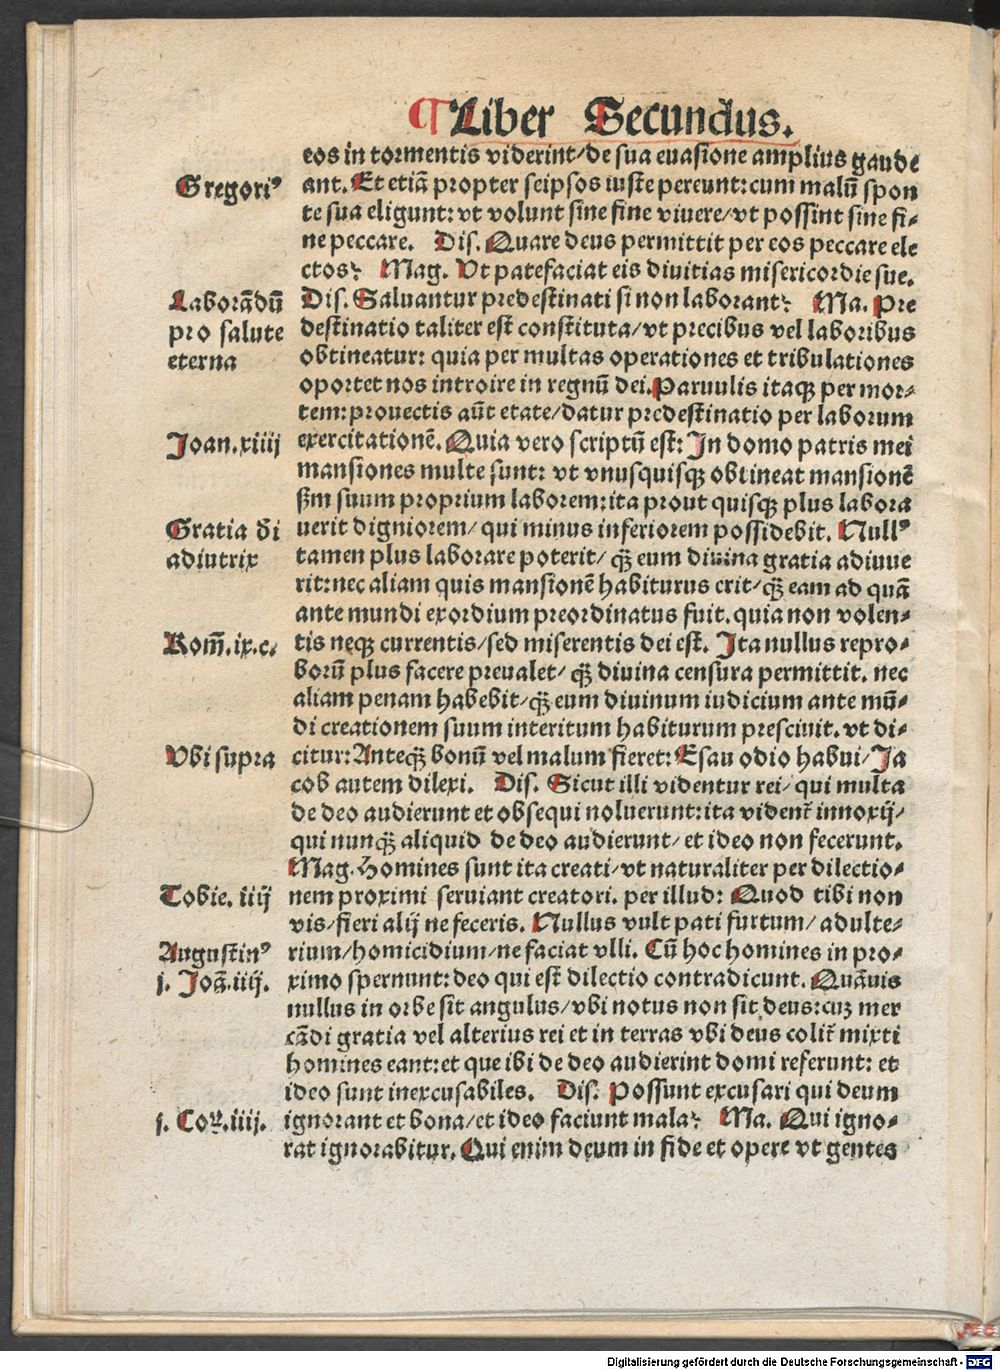 ¶ Liber Secundus.
eos in tormentis viderint/de sua euasione amplius gaude
Gregori⁹
ant. Et etiã propter seipsos iuste pereunt: cum malũ spon
te sua eligunt: vt volunt sine fine viuere/vt possint sine fi-
ne peccare. Dis. Quare deus permittit per eos peccare ele
ctos? Mag. Vt patefaciat eis diuitias misericordie sue.
Laborãdũ
pro salute
eterna
Dis. Saluantur predestinati si non laborant? Ma. Pre
destinatio taliter est constituta/vt precibus vel laboribus
obtineatur: quia per multas operationes et tribulationes
oportet nos introire in regnũ dei. Paruulis itaqꝫ per mor-
tem: prouectis aũt etate/datur predestinatio per laborum
Joan.xiiij
exercitationẽ. Quia vero scriptũ est: In domo patris mei
mansiones multe sunt: vt vnusquisqꝫ obtineat mansionẽ
ẜm suum proprium laborem: ita prout quisqꝫ plus labora
Gratia di
adiutrix
uerit digniorem/ qui minus inferiorem possidebit. Null⁹
tamen plus laborare poterit/ qꝫ̃ eum diuina gratia adiuue
rit: nec aliam quis mansionẽ habiturus erit/qꝫ̃ eam ad quã
ante mundi exordium preordinatus fuit. quia non volen-
Rom̃.ix.c.
tis neqꝫ currentis/sed miserentis dei est. Ita nullus repro-
borũ plus facere preualet/ qꝫ̃ diuina censura permittit. nec
aliam penam habebit/qꝫ̃ eum diuinum iudicium ante mũ-
di creationem suum interitum habiturum presciuit. vt di-
Vbi supra
citur: Anteqꝫ̃ bonũ vel malum fieret: Esau odio habui/Ja
cob autem dilexi. Dis. Sicut illi videntur rei/ qui multa
de deo audierunt et obsequi noluerunt: ita vident᷑ innoxij/
qui nunqꝫ̃ aliquid de deo audierunt/ et ideo non fecerunt.
Mag. Homines sunt ita creati/vt naturaliter per dilectio-
Tobie. iiij
nem proximi seruiant creatori. per illud: Quod tibi non
vis/fieri alij ne feceris. Nullus vult pati furtum/ adulte-
Augustin⁹
rium/homicidium/ne faciat vlli. Cũ hoc homines in pro-
j. Joã.iiij.
ximo spernunt: deo qui est dilectio contradicunt. Quãuis
nullus in orbe sit angulus/vbi notus non sit deus: cuꝫ mer
cãdi gratia vel alterius rei et in terras vbi deus colit᷑ mixti
homines eant: et que ibi de deo audierint domi referunt: et
ideo sunt inexcusabiles. Dis. Possunt excusari qui deum
j. Coꝝ.iiij.
ignorant et bona/et ideo faciunt mala? Ma. Qui igno-
rat ignorabitur. Qui enim deum in fide et opere vt gentes
Digitalisierung gefördert durch die Deutsche Forschungsgemeinschaft - DFG